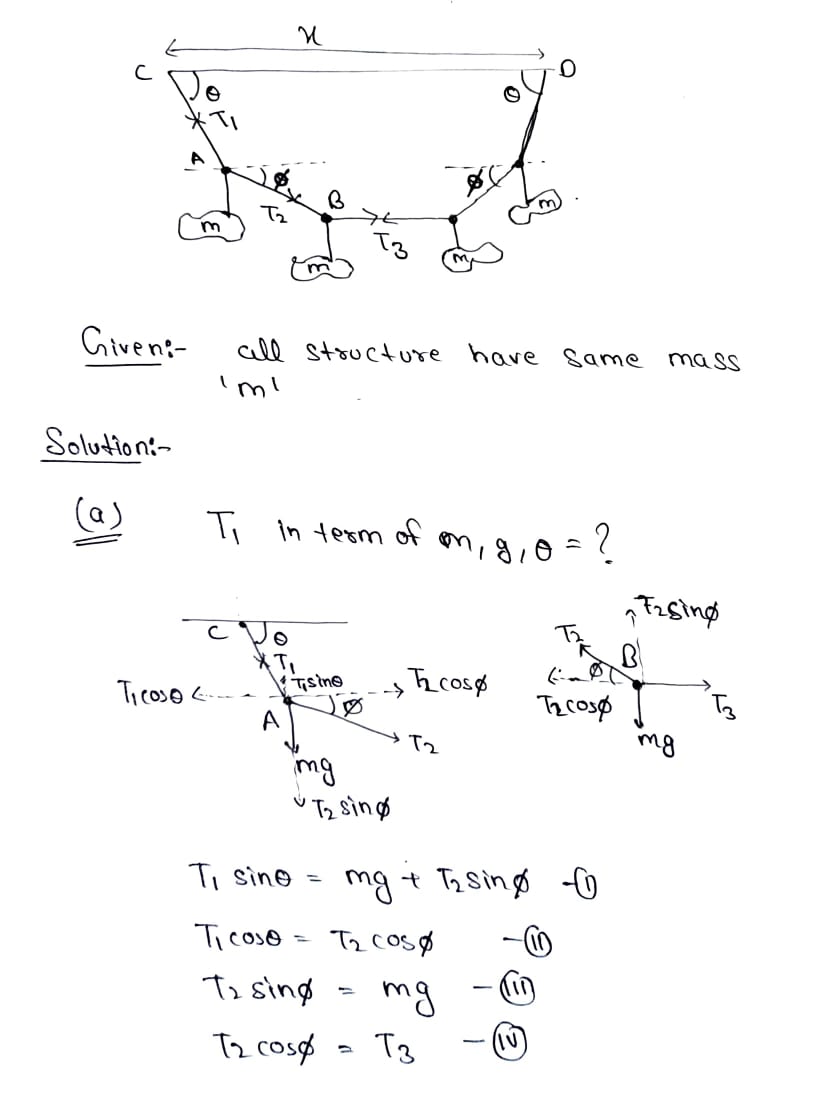 x
C θ θ D
T₁
A ϕ B ϕ
T₂ T₃
m m m m
Given:- all structure have same mass
'm'
Solution:-
(a) T₁ in term of m, g, θ = ?
C θ
T₁
T₁sinθ
T₁cosθ T₂cosϕ
A ϕ
T₂
mg
T₂ sinϕ
T₂sinϕ
T₂ B
ϕ
T₂cosϕ T₃
mg
T₁ sinθ = mg + T₂sinϕ -(i)
T₁cosθ = T₂cosϕ -(ii)
T₂ sinϕ = mg -(iii)
T₂cosϕ = T₃ -(iv)